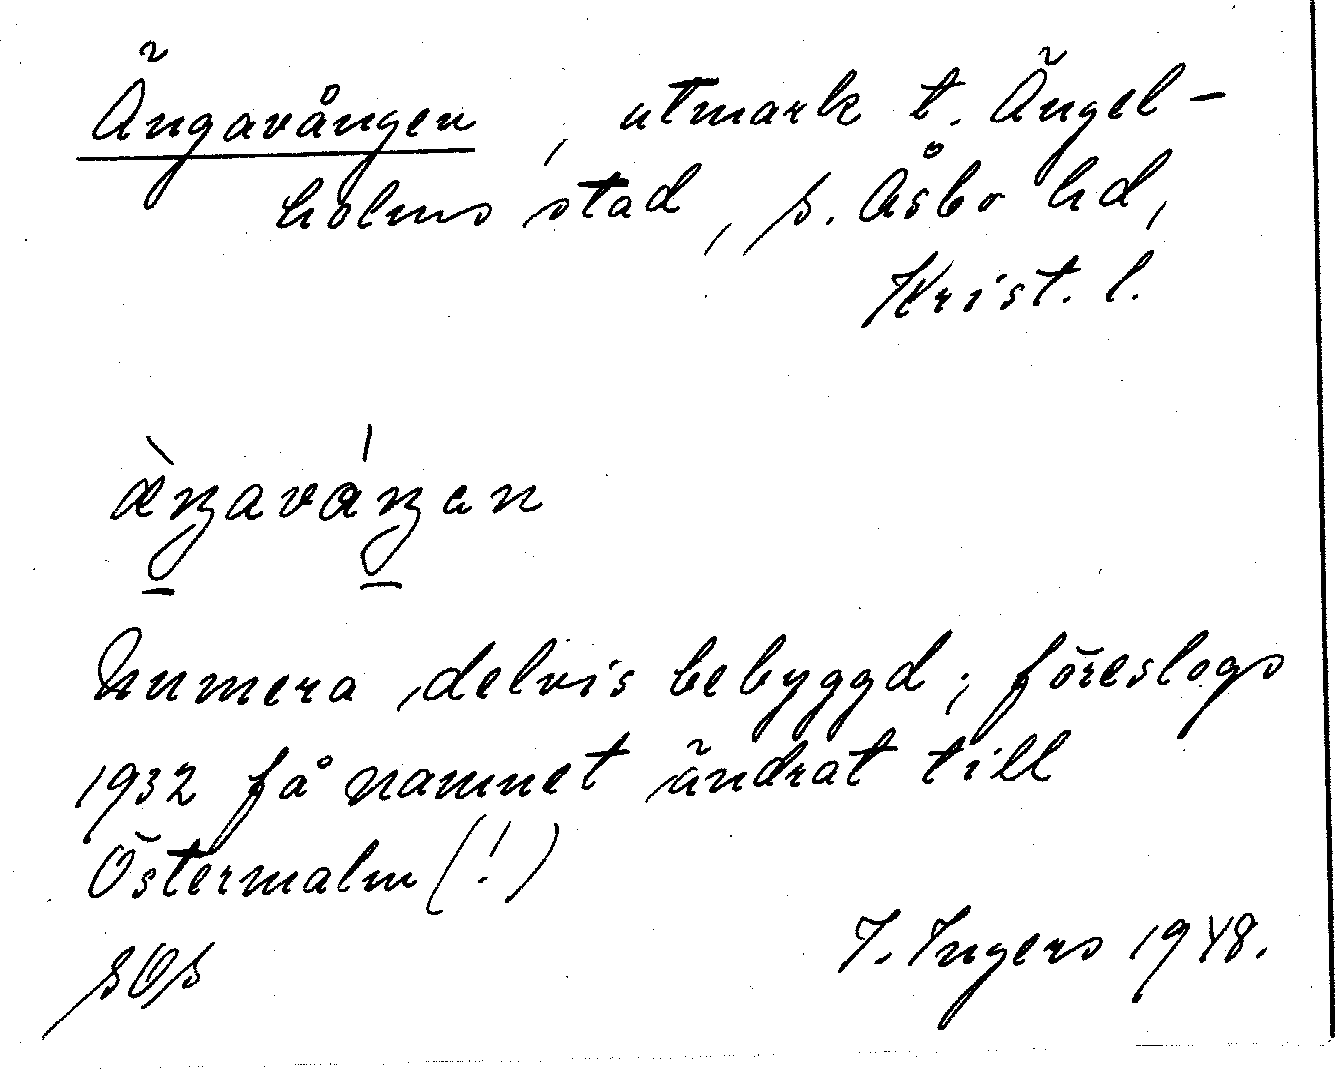 Ängavången, utmark t. Ängel-
holms stad, S. Åsbo hd,
Krist. l.
æ̀ŋaváŋen
Numera delvis bebyggd; föreslogs
1932 få namnet ändrat till
Östermalm (!)
SOS
I. Ingers 1948.